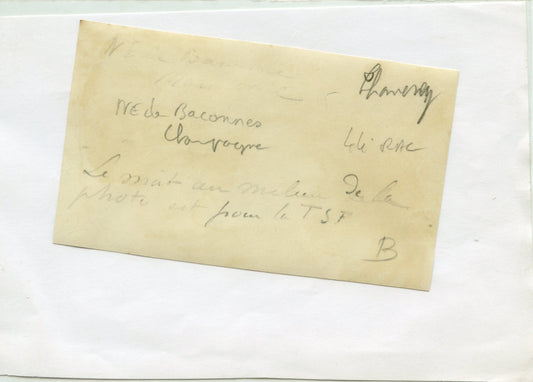 NE de Baconnes
NE de Baconnes
Champagne
44e RAC
Le mat au milieu de la
photo est pour la TSF
B